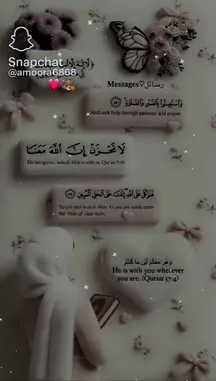 Snapchat
@amoora6868
Messages♡رسائل
وَاسْتَعِينُوا بِالصَّبْرِ وَالصَّلَاةِ
And seek help through patience and prayer
لَا تَحْزَنْ إِنَّ اللَّهَ مَعَنَا
Do not grieve; indeed Allah is with us. Quran 9:40
فَتَوَكَّلْ عَلَى اللَّهِ إِنَّكَ عَلَى الْحَقِّ الْمُبِينِ
So put your trust in Allah, for you are surely upon
the Path of clear truth.
وَهُوَ مَعَكُمْ أَيْنَ مَا كُنتُمْ
He is with you wherever
you are. (Quran 57:4)